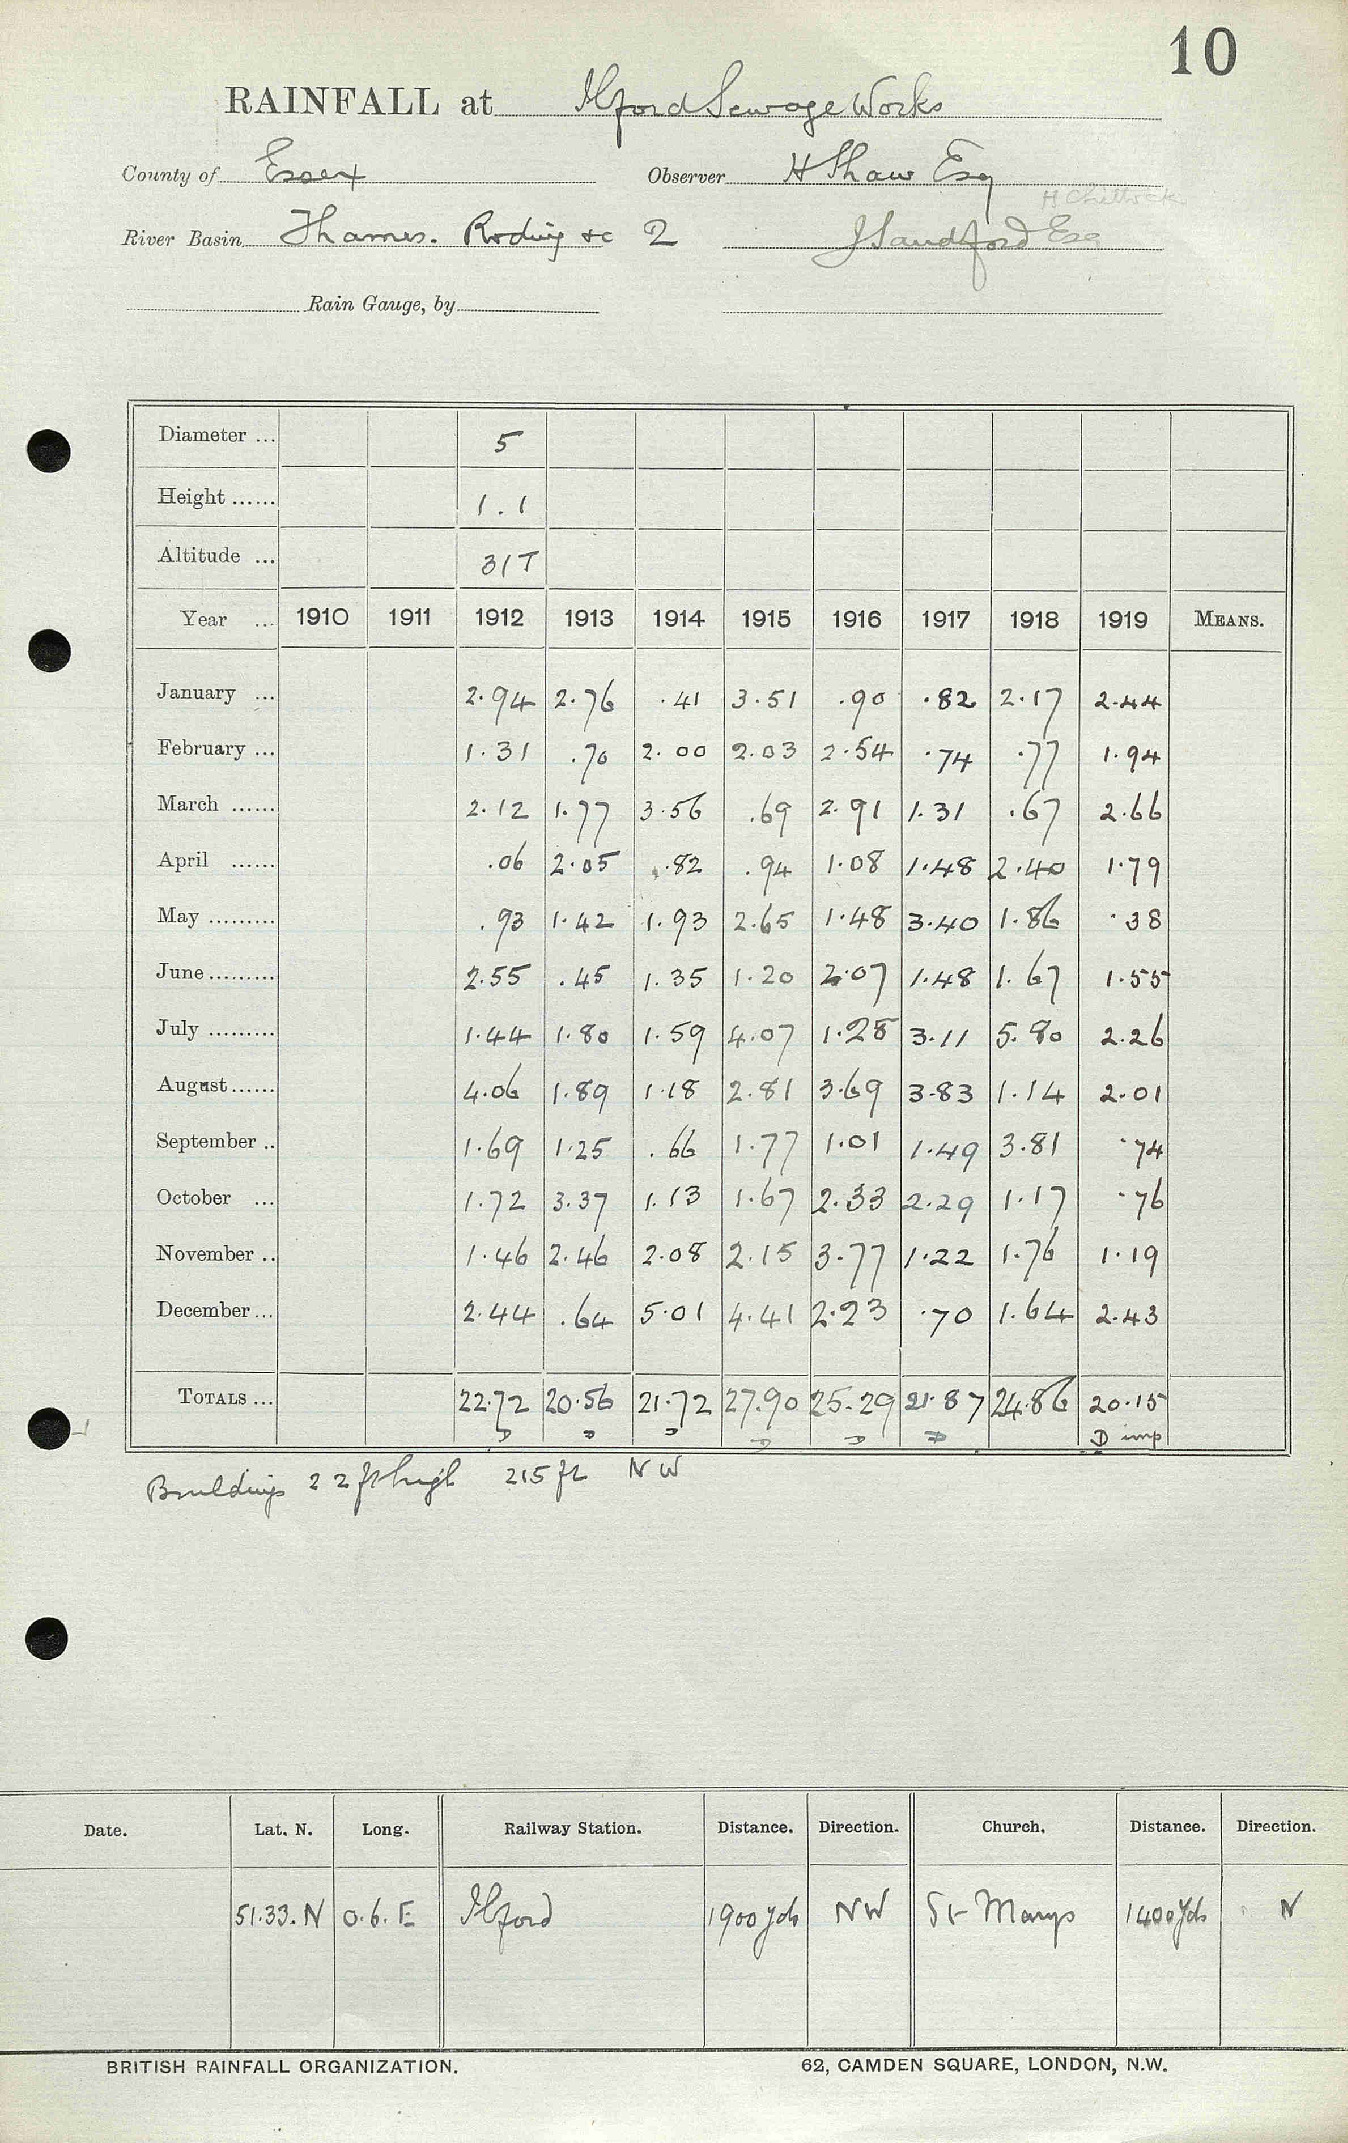 10
RAINFALL at Ilford Sewage Works
County of Essex Observer H Shaw Esq
H Chittock
River Basin Thames. Roding &c 2 J Sandford Esq
Rain Gauge, by
Diameter ... 5
Height ...... 1.1
Altitude ... 31T
Year ... 1910 1911 1912 1913 1914 1915 1916 1917 1918 1919 MEANS.
January ... 2.94 2.76 .41 3.51 .90 .82 2.17 2.44
February ... 1.31 .70 2.00 2.03 2.54 .74 .77 1.94
March ...... 2.12 1.77 3.56 .69 2.91 1.31 .67 2.66
April ...... .06 2.05 .82 .94 1.08 1.48 2.40 1.79
May ......... .93 1.42 1.93 2.65 1.48 3.40 1.86 .38
June ......... 2.55 .45 1.35 1.20 2.07 1.48 1.67 1.55
July ......... 1.44 1.80 1.59 4.07 1.28 3.11 5.80 2.26
August ...... 4.06 1.89 1.18 2.81 3.69 3.83 1.14 2.01
September .. 1.69 1.25 .66 1.77 1.01 1.49 3.81 .74
October ... 1.72 3.37 1.13 1.67 2.33 2.29 1.17 .76
November .. 1.46 2.46 2.08 2.15 3.77 1.22 1.76 1.19
December ... 2.44 .64 5.01 4.41 2.23 .70 1.64 2.43
TOTALS ... 22.72 20.56 21.72 27.90 25.29 21.87 24.86 20.15
D D D D D D D imp
Buildings 22 ft high 215 ft NW
Date. Lat. N. Long. Railway Station. Distance. Direction. Church. Distance. Direction.
51.33.N 0.6.E Ilford 1900 yds NW St Marys 1400 Yds N
BRITISH RAINFALL ORGANIZATION. 62, CAMDEN SQUARE, LONDON, N.W.